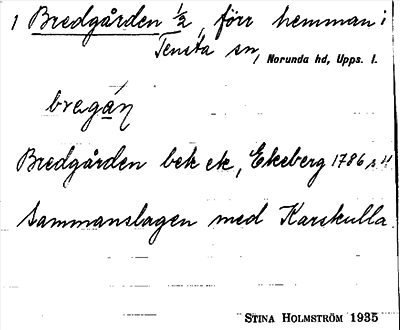 1 Bredgården 1/2, förr hemman i
Tensta sn, Norunda hd, Upps. l.
bregán
Bredgården bek ek, Ekeberg 1786 s 4
Sammanslagen med Karskulla.
STINA HOLMSTRÖM 1935